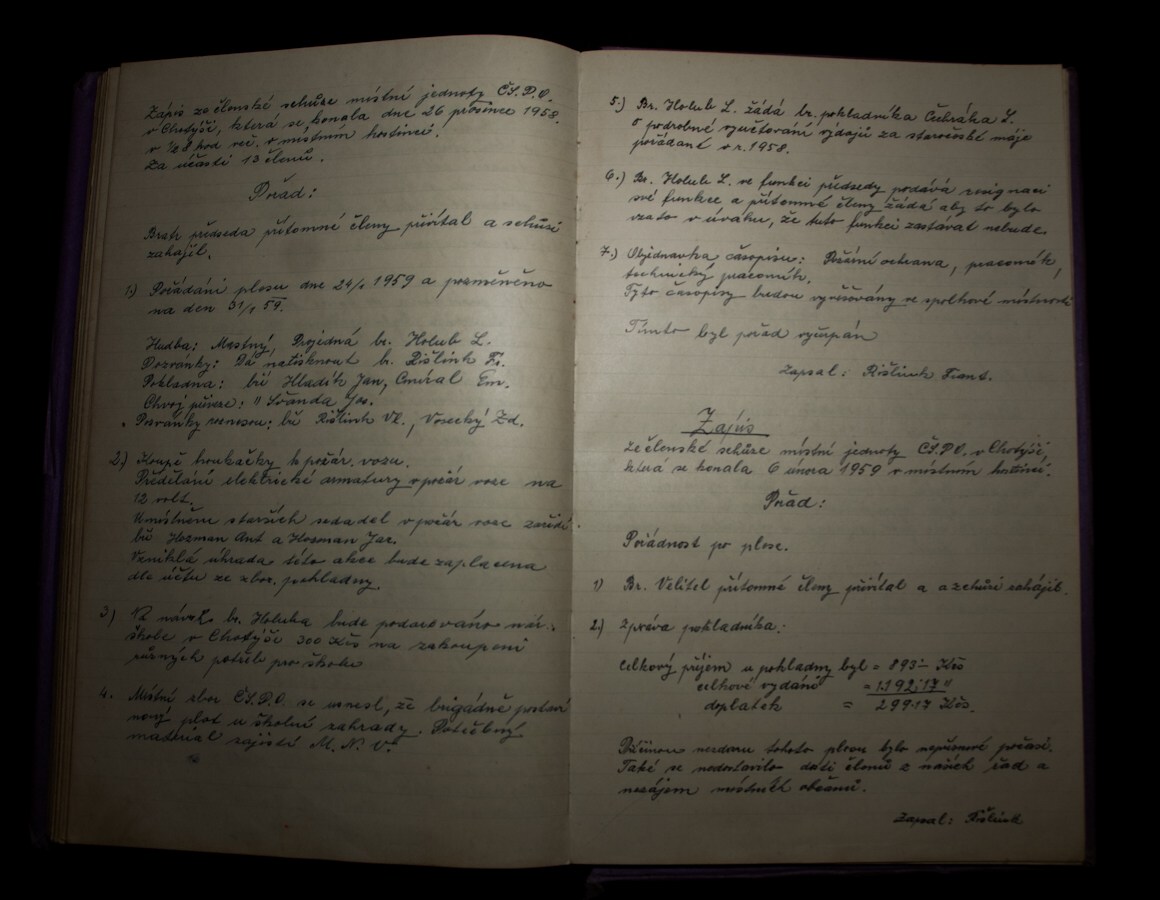 Zápis ze členské schůze místní jednoty Čs.P.O.
v Chotýši, která se konala dne 26 prosince 1958.
v ½8 hod več. v místním hostinci.
Za účasti 13 členů.
Pořad:
Bratr předseda přítomné členy přivítal a schůzi
zahájil.
1.) Pořádání plesu dne 24/1 1959 a pozměněno
na den 31/1 59.
Hudba: Mestný, Projedná br. Holub L.
Pozvánky: Dá natisknout b. Rišlink Fr.
Pokladna: bří Hladík Jan, Cmíral Em.
Chvoj přiveze: " Švanda Jos.
Pozvánky roznesou: bří Rišlink Vl., Vosecký Zd.
2.) Koupě houkačky k požár. vozu.
Předělání elektrické armatury v požár voze na
12 volt.
Umístněni starších sedadel v požár voze zařídí
bří Hozman Ant a Hozman Jar.
Vzniklá úhrada této akce bude zaplacena
dle účtu ze zbor. pokladny.
3) Na návrh b. Holuba bude podarováno nár.
škole v Chotýši 300 Kčs na zakoupení
různých potřeb pro školu
4. Místní zbor Čs.P.O. se usnesl, že brigádně postaví
nový plot u školní zahrady. Potřebný
materiál zajistí M.N.V.
5.) Br. Holub L. žádá br. pokladníka Čihráka L.
o podrobné vyúčtování výdajů za staročeské máje
pořádané v r. 1958.
6.) Br. Holub L. ve funkci předsedy podává resignaci
své funkce a přítomné členy žádá aby to bylo
vzato v úvahu, že tuto funkci zastávat nebude.
7.) Objednavka časopisu: Požární ochrana, pracovník,
technický pracovník.
Tyto časopisy budou vyvěšovány ve spolkové místnosti
Tímto byl pořad vyčerpán
Zapsal: Rišlink Frant.
Zápis
ze členské schůze místní jednoty Čs.P.O. v Chotýši,
která se konala 6 února 1959 v místním hostinci.
Pořad:
Pořádnost po plese.
1) Br. Velitel přítomné členy přivítal a a schůzi zahájil.
2.) Zpráva pokladníka:
Celkový příjem u pokladny byl = 893·- Kčs
celkové vydání = 1.192·17 "
doplatek = 299·17 Kčs.
Příčinou nezdaru tohoto plesu bylo nepříznivé počasí.
Také se nedostavilo dosti členů z našich řad a
nezájem místních občanů.
Zapsal: Rišlink